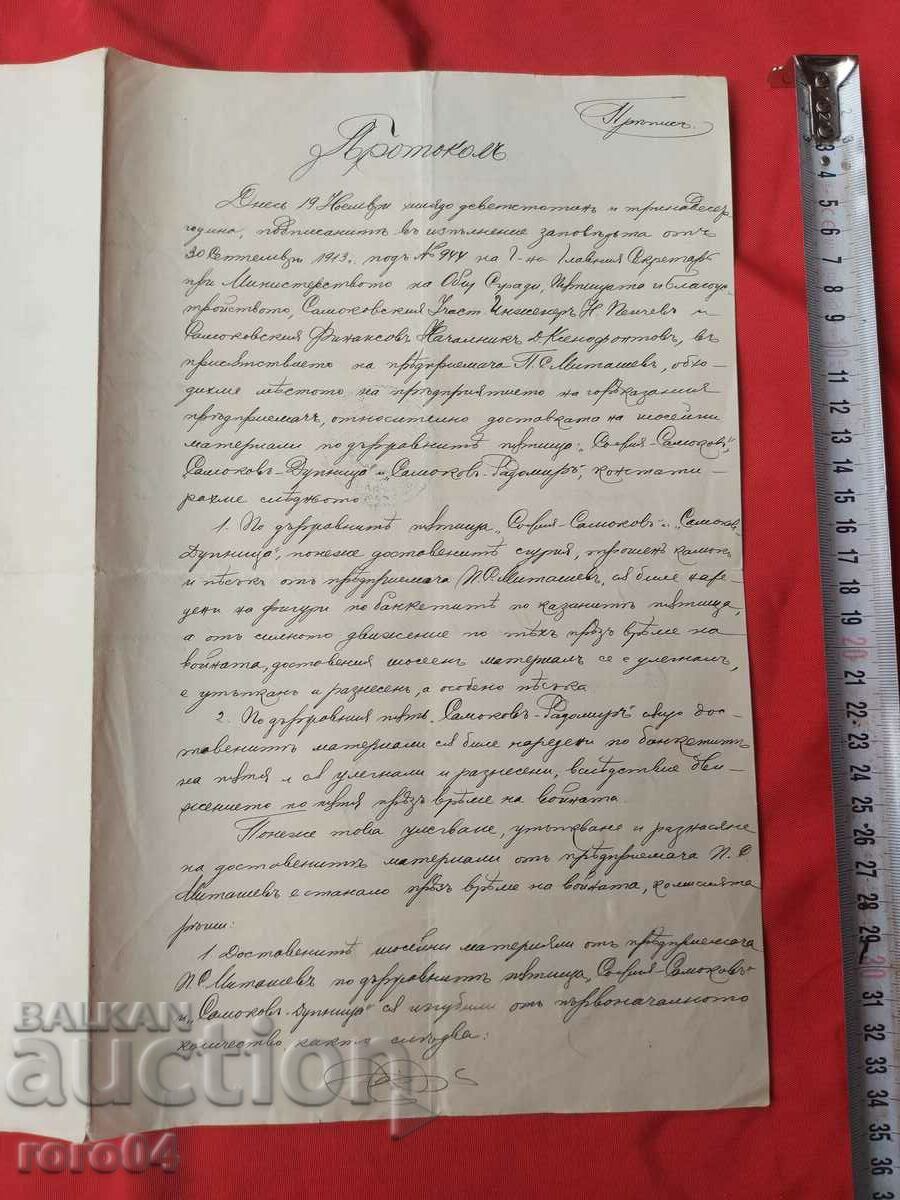 Прѣписъ.
Протоколъ
Днесь 19 Ноемврий хилядо деветстотинъ и тринадесет
година, подписанитѣ въ изпълнение заповѣдьта отъ
30 Септемврий 1913 г. подъ № 944 на Г-на Главния Секретарь
при Министерството на Общ. Сгради, Пѫтищата и Благоус-
тройството, Самоковския Участ. Инженеръ Н. Пенчев и
Самоковския Финансовъ Началникъ Д. Ксенофонтовъ, въ
присѫтствието на прѣдприемача П. С. Миташевъ, обхо-
дихме мѣстото на прѣдприятието на горѣказания
прѣдприемачъ, относително доставката на шосейни
материали по държавнитѣ пѫтища: „София-Самоковъ",
„Самоковъ-Дупница" и „Самоковъ-Радомиръ", констати-
рахме слѣдньото:
1. По държавнитѣ пѫтища „София-Самоковъ" и „Самоков-
Дупница", понеже доставенитѣ сгурия, трошенъ камъкъ
и пѣсъкъ отъ прѣдприемача П. С. Миташевъ, сѫ биле наре-
дени на фигури по банкетитѣ по казанитѣ пѫтища,
а отъ силното движение по тѣхъ прѣзъ врѣме на
войната, доставения шосеенъ материалъ се е улегналъ,
е утъпканъ и разнесенъ, а особено пѣсъка.
2. По държавния пѫть „Самоковъ-Радомиръ" сѫщо дос-
тавенитѣ материали сѫ биле наредени по банкетитѣ
на пѫтя и сѫ улегнали и разнесени, вслѣдствие дви-
жението по пѫтя прѣзъ врѣме на войната.
Понеже това улегване, утъпкване и разнасяне
на доставенитѣ материали отъ прѣдприемача П. С.
Миташевъ е станало прѣзъ врѣме на войната, комисията
рѣши:
1. Доставенитѣ шосейни материяли отъ прѣдприемача
П. С. Миташевъ по държавнитѣ пѫтища „София-Самоковъ"
и „Самоковъ-Дупница" сѫ изгубили отъ първоначалното
количество както слѣдва:
BALKAN
auction
roro04
3
4
5
6
7
8
9
10
11
12
13
14
15
16
17
18
19
20
21
22
23
24
25
26
27
28
29
30
31
32
33
34
35
36